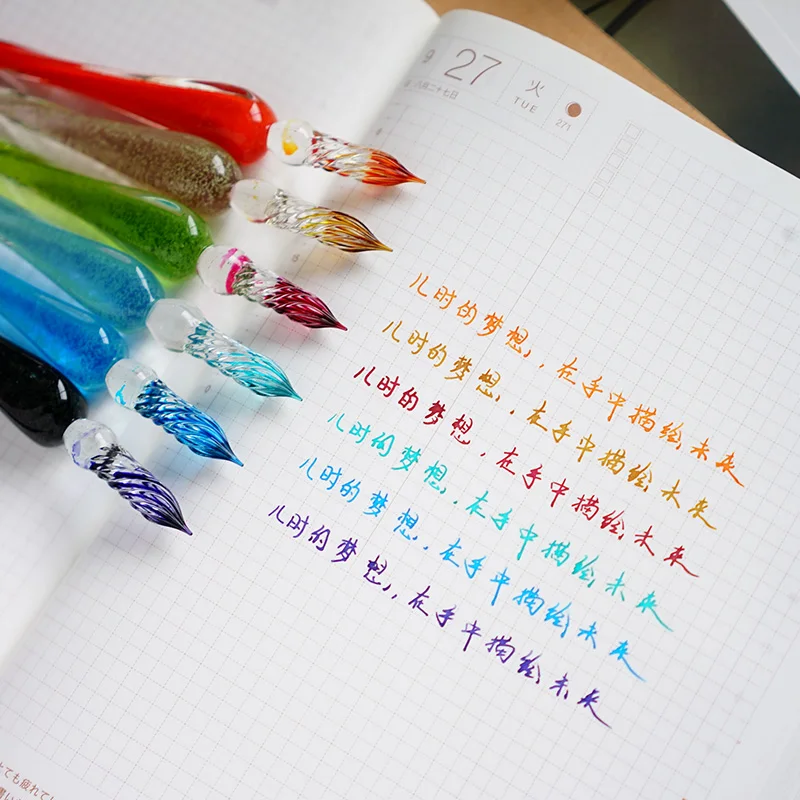 9 27 火 TUE 271
八月二十七日
儿时的梦想,在手中描绘未来
儿时的梦想,在手中描绘未来
儿时的梦想,在手中描绘未来
儿时的梦想,在手中描绘未来
儿时的梦想,在手中描绘未来
儿时的梦想,在手中描绘未来
とても疲れてい